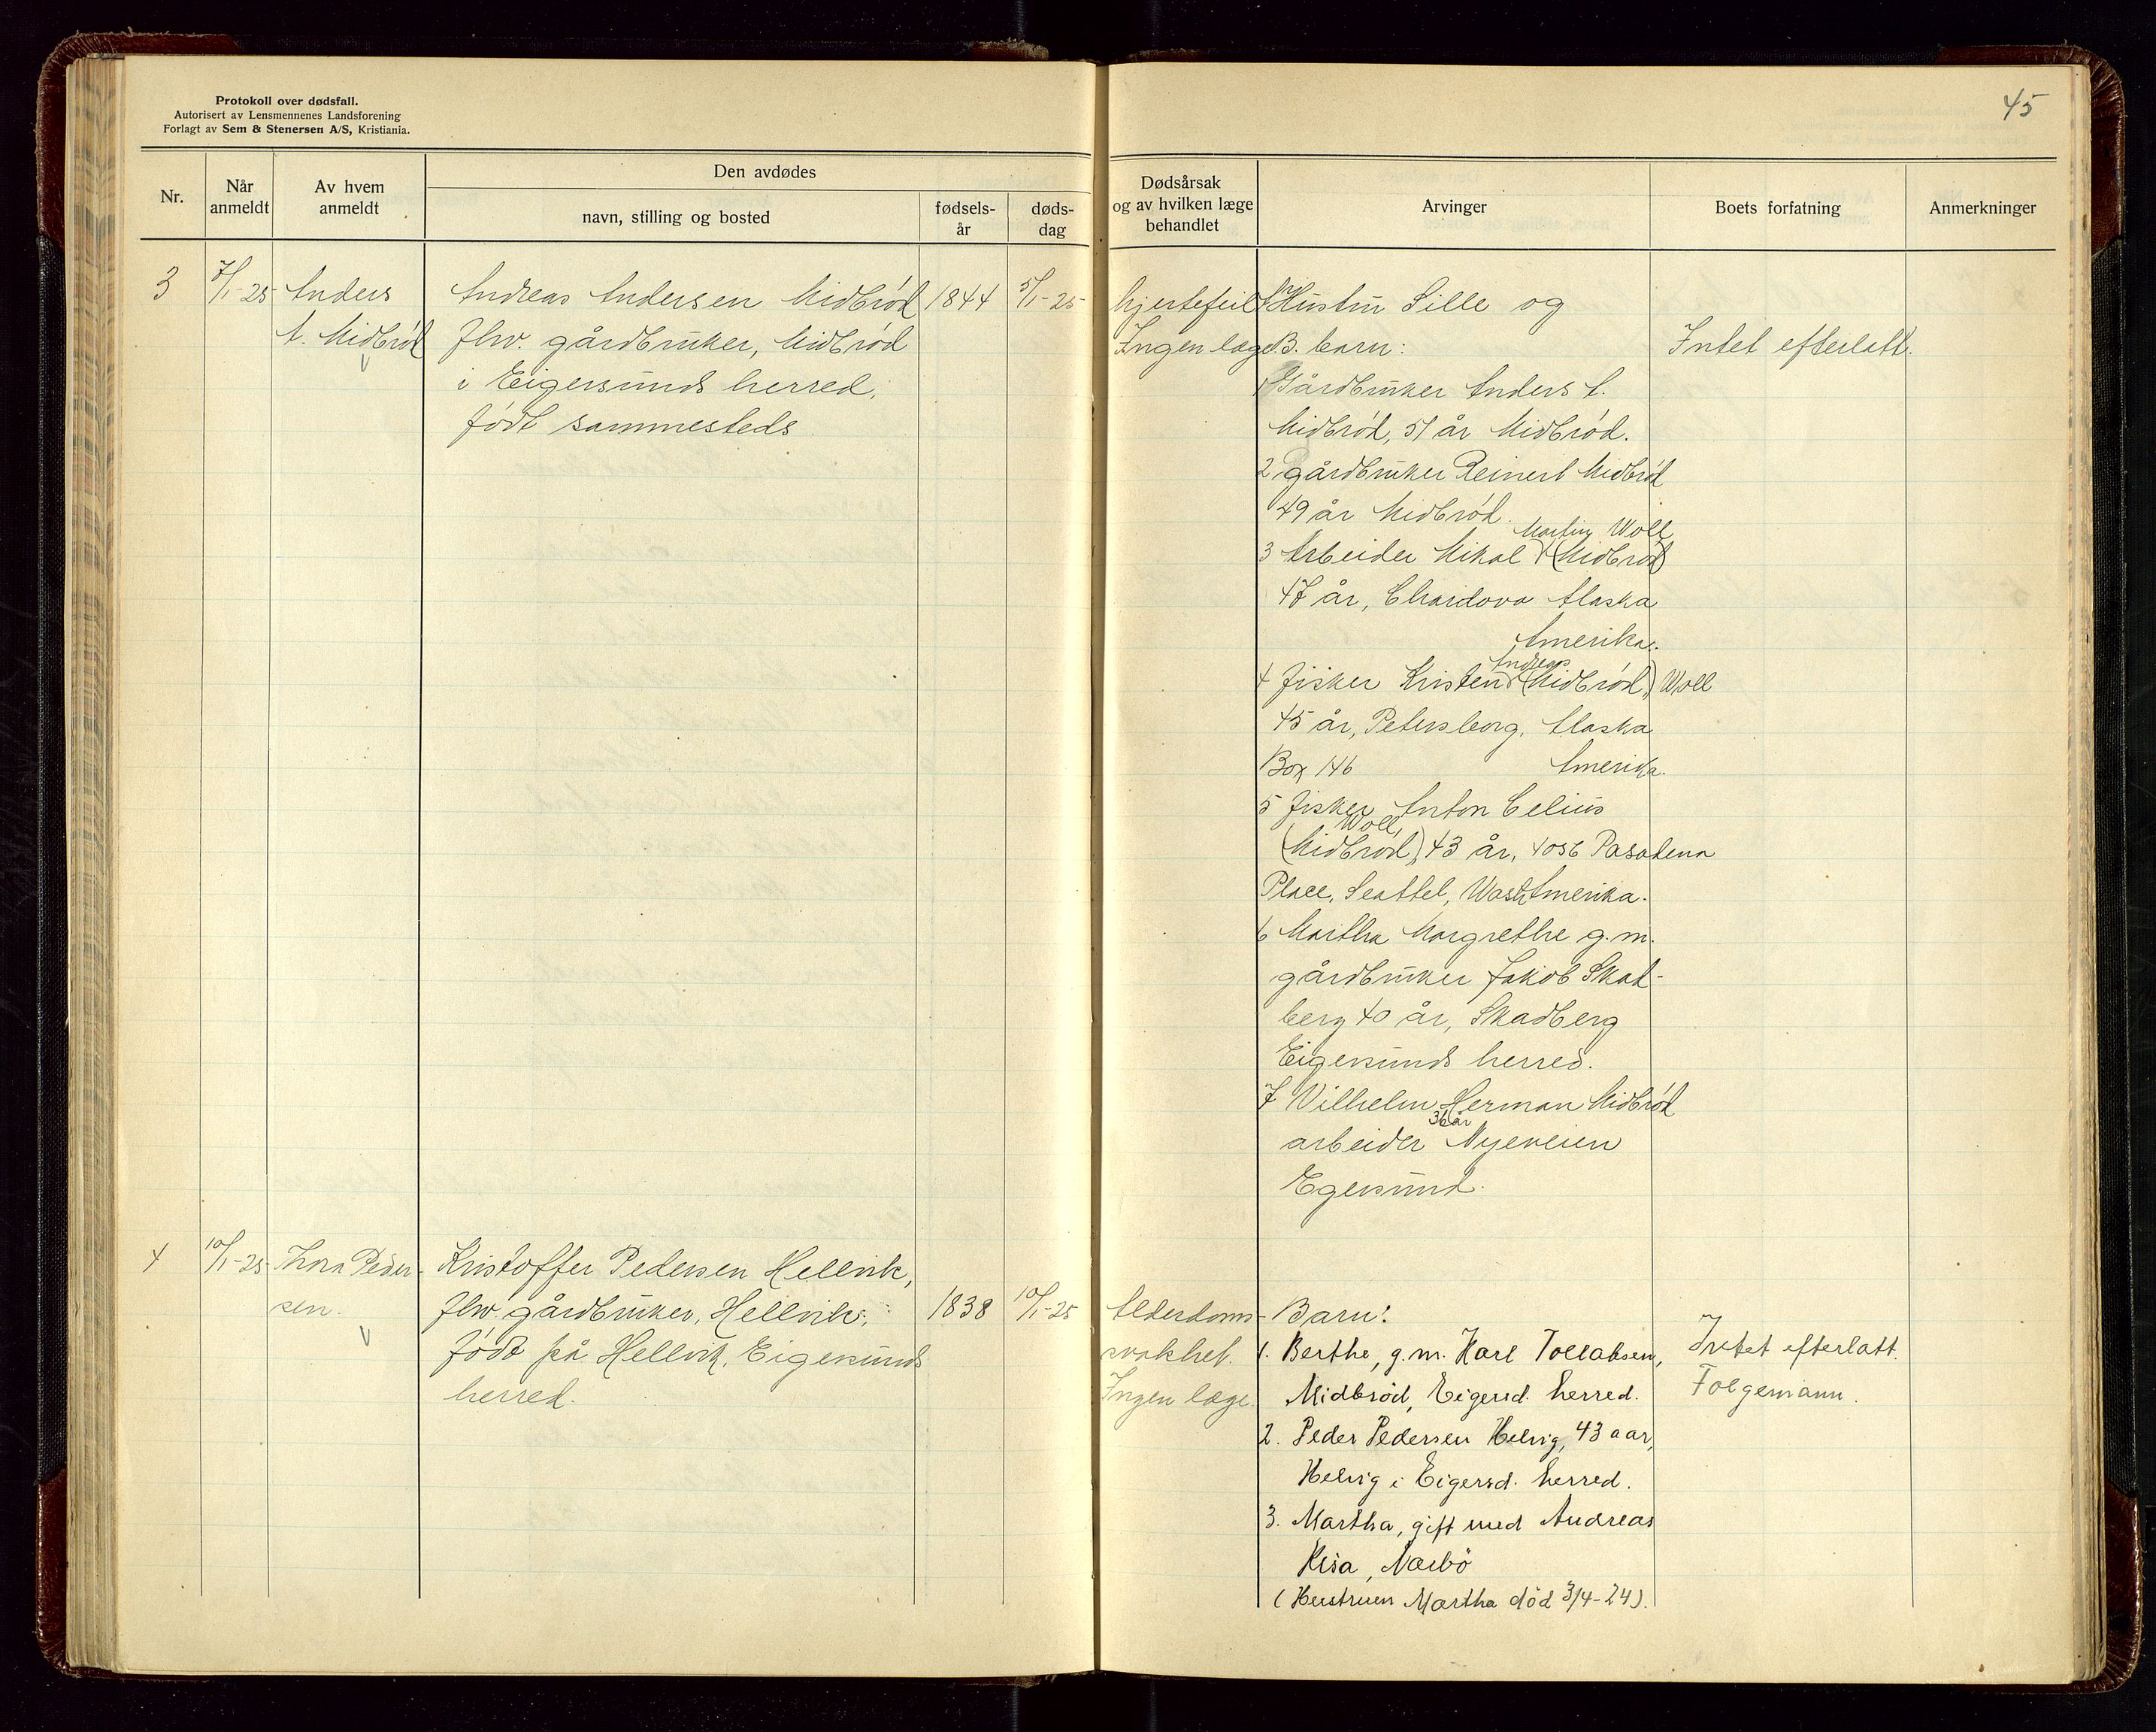 Protokoll over dødsfall.
Autorisert av Lensmennenes Landsforening
Forlagt av Sem & Stenersen A/S, Kristiania.
45
Nr.
Når anmeldt
Av hvem anmeldt
Den avdødes
navn, stilling og bosted
fødsels-år
døds-dag
Dødsårsak og av hvilken læge behandlet
Arvinger
Boets forfatning
Anmerkninger
3
7/1-25
Anders
A. Midbrød
Andreas Andersen Midbrød
Fhv. gårdbruker, Midbrød
i Eigersunds herred,
født sammesteds
1844
5/1-25
hjertefeil
Ingen læge
Hustru Sille og
B. barn:
1 Gårdbruker Anders A.
Midbrød, 51 år Midbrød.
2 gårdbruker Reinert Midbrød
49 år Midbrød.
Martin Woll
3 Arbeider Mikal (Midbrød)
47 år, Chardova Alaska
Amerika.
Andreas
4 Fisker Kristen (Midbrød) Woll
45 år, Petersborg, Alaska
Box 146 Amerika.
5 Fisker Anton Celius
Woll,
(Midbrød), 43 år, 4056 Pasadena
Place, Seattel, Wash Amerika.
6 Martha Margrethe g.m.
gårdbruker Jakob Skad-
berg 40 år, Skadberg
Eigersunds herred.
7 Vilhelm Herman Midbrød
36 år
arbeider Nyeveien
Egersund.
Intet efterlatt.
4
10/1-25
Thora Peder-
sen.
Kristoffer Pedersen Hellvik,
fhv. gårdbruker, Hellvik,
født på Hellvik, Eigersunds
herred.
1838
10/1-25
Alderdoms-
svakhet.
Ingen læge.
Barn:
1. Berthe, g.m. Karl Tollaksen,
Midbrød, Eigersd. herred.
2. Peder Pedersen Helvig, 43 aar,
Helvig i Eigersd. herred.
3. Martha, gift med Andreas
Risa, Nærbö
(Hustruen Martha död 3/4-24).
Intet efterlatt.
Folgemann.